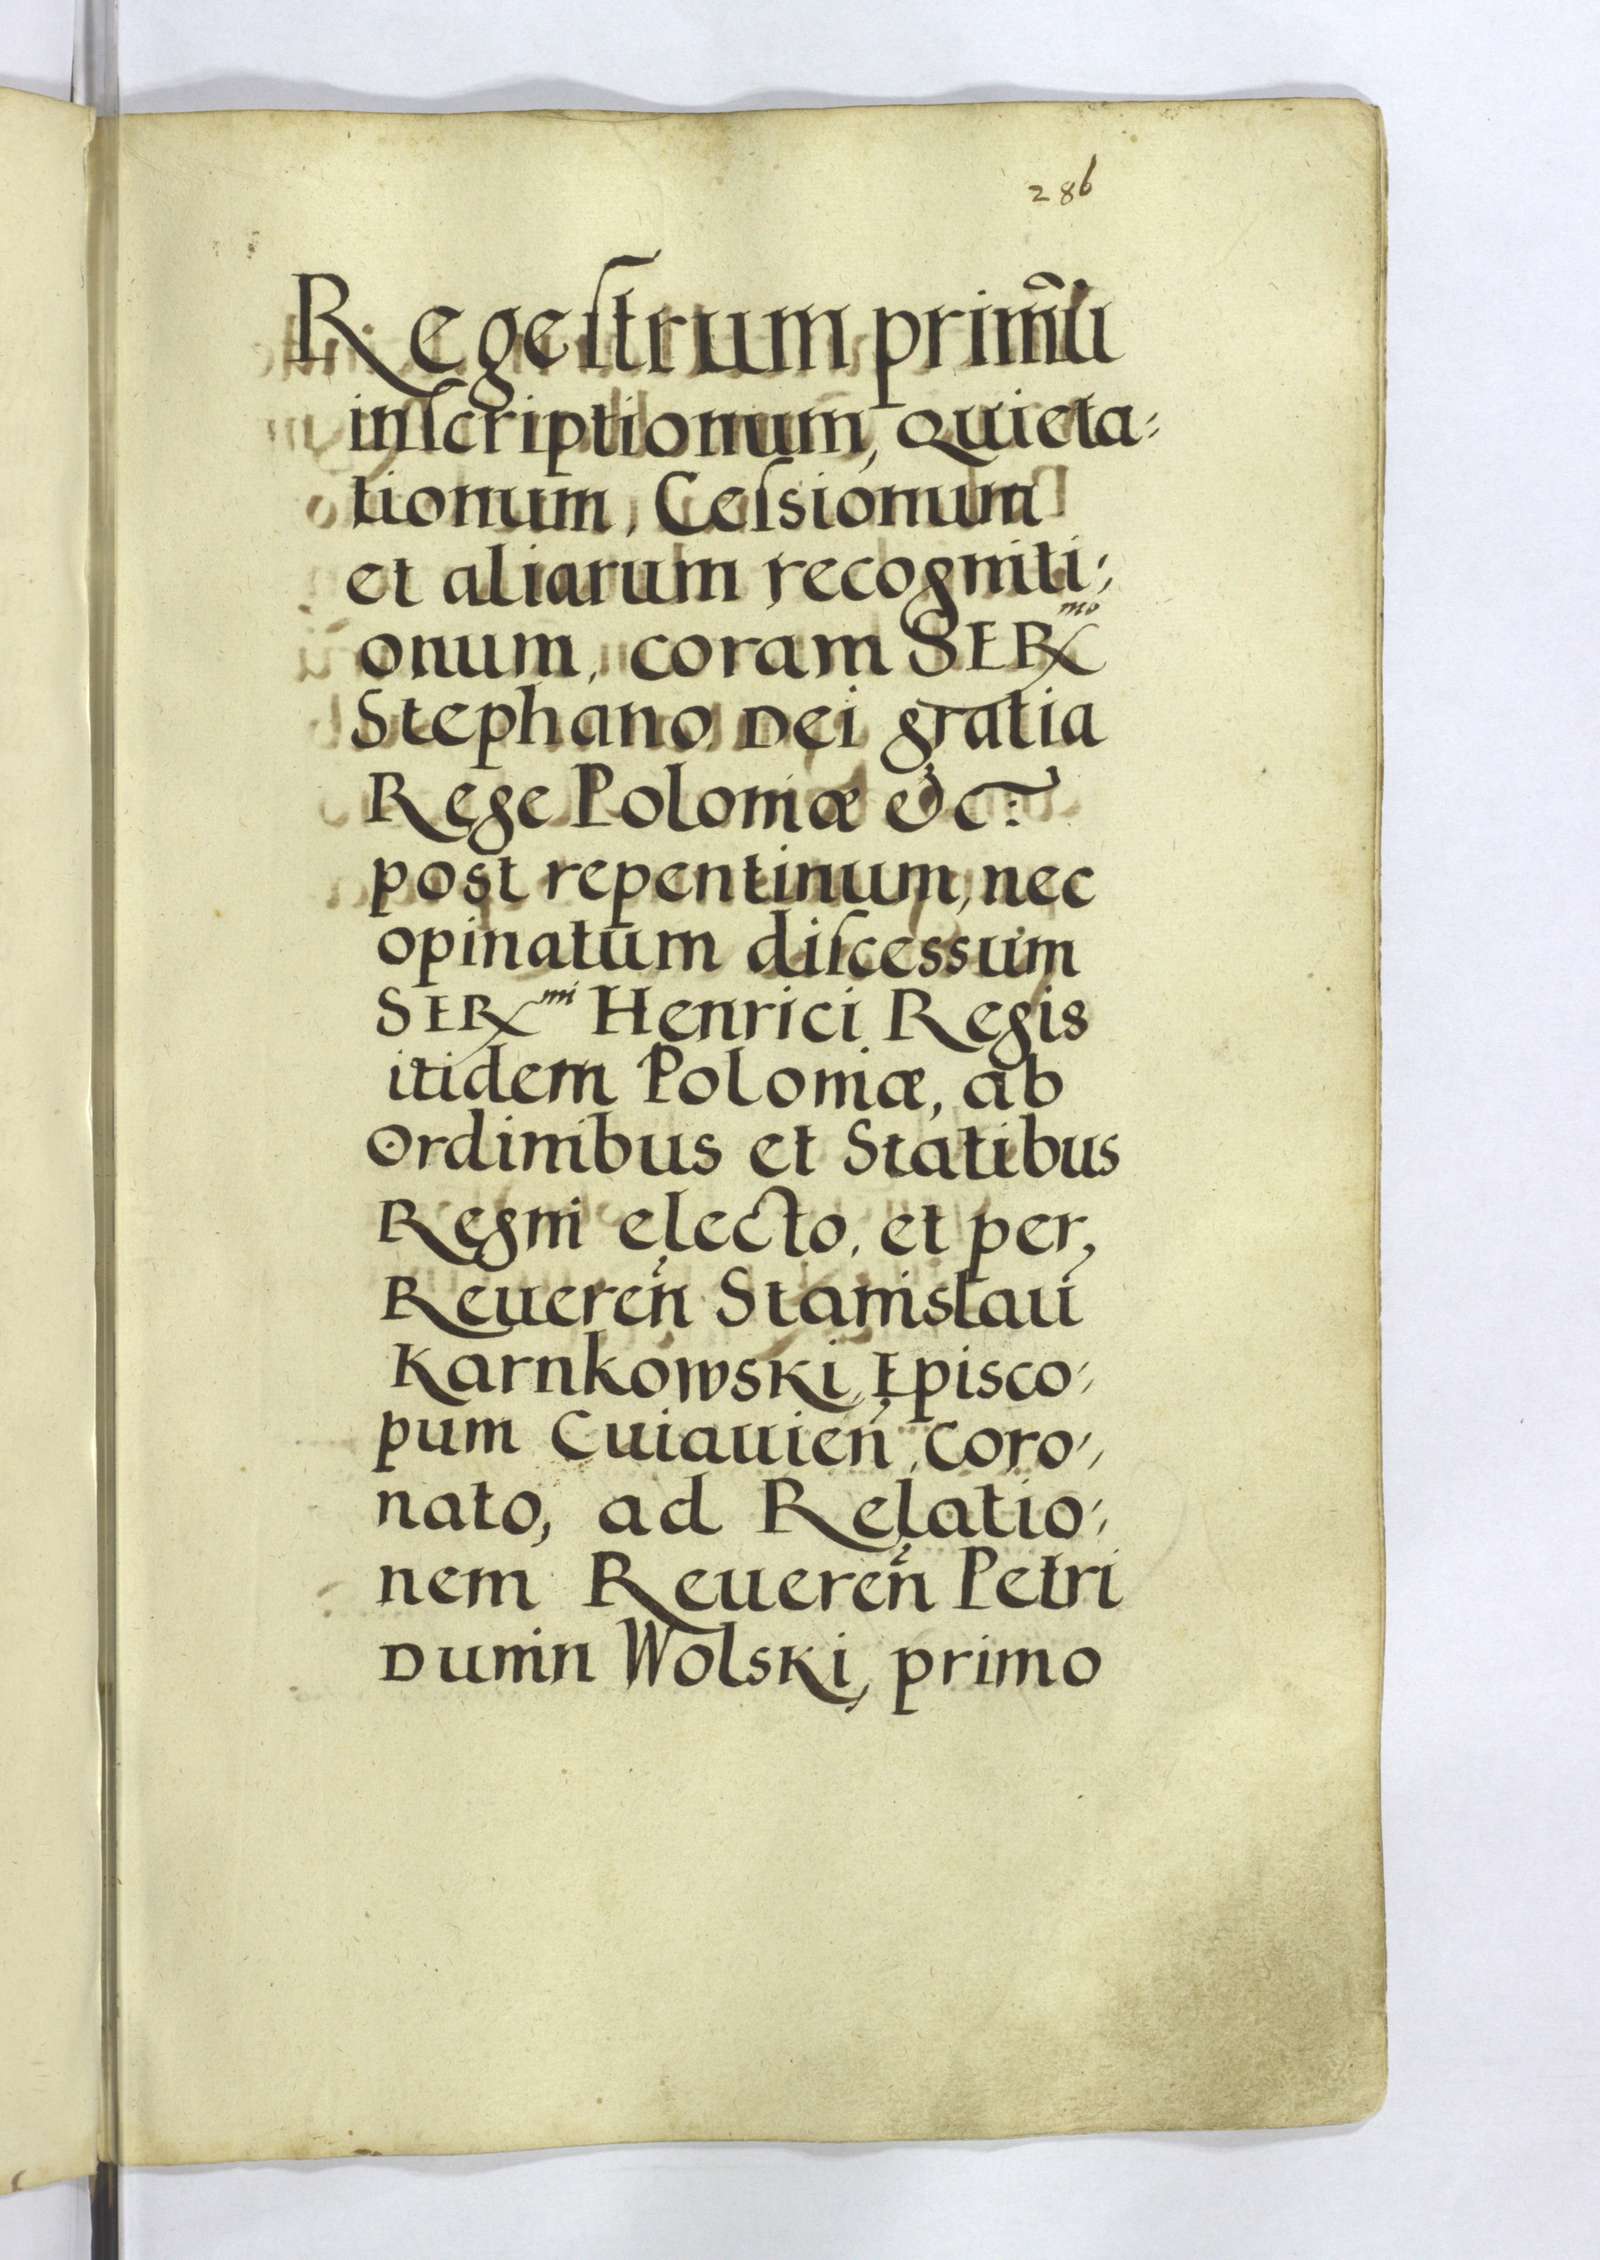 286
Regeſtrum primũ
inſcriptionum, Quieta:
tionum, Ceſsionum
et aliarum recogniti:
onum, coram SERmo
Stephano Dei gratia
Rege Poloniæ &c:
post repentinum, nec
opinatum diſcessum
SERmi Henrici Regis
itidem Poloniæ, ab
Ordinibus et Statibus
Regni electo, et per,
Reueren Stanislau
Karnkowski, Episco:
pum Cuiauien Coro:
nato, ad Relatio:
nem Reueren Petri
Dunin Wolski, primo